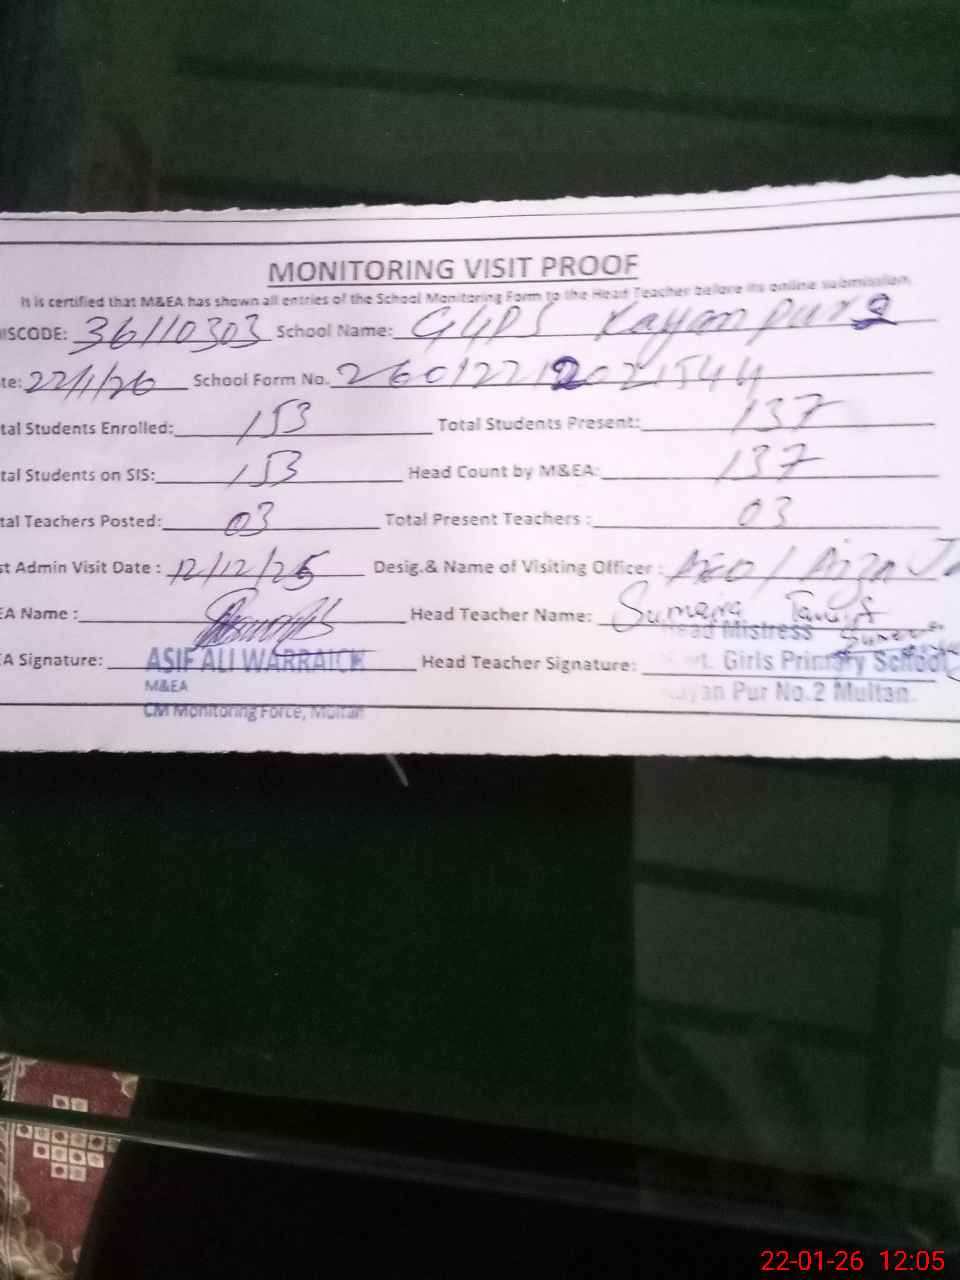 MONITORING VISIT PROOF
It is certified that M&EA has shown all entries of the School Monitoring Form to the Head Teacher before its online submission.
ISCODE: 36110303 School Name: GGPS Kayan pur 2
te: 22/1/26 School Form No. 2601221202154 4
tal Students Enrolled: 153 Total Students Present: 137
tal Students on SIS: 153 Head Count by M&EA: 137
tal Teachers Posted: 03 Total Present Teachers : 03
st Admin Visit Date : 12/12/25 Desig.& Name of Visiting Officer : AEO / Aiza
EA Name : Head Teacher Name: Sumaira
Head Mistress
A Signature: ASIF ALI WARRAICH Head Teacher Signature: vt. Girls Primary School
M&EA yan Pur No.2 Multan.
CM Monitoring Force, Multan
22-01-26 12:05